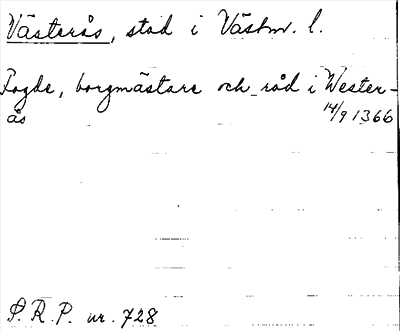 Västerås, stad i Västm. l.
Fogde, borgmästare och råd i Wester-
ås 14/9 1366
S.R.P. nr. 728